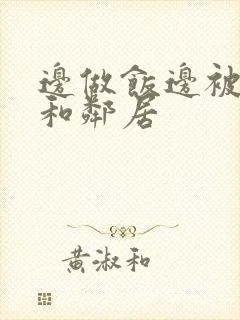 邊做飯邊被
和鄰居
黃淑和